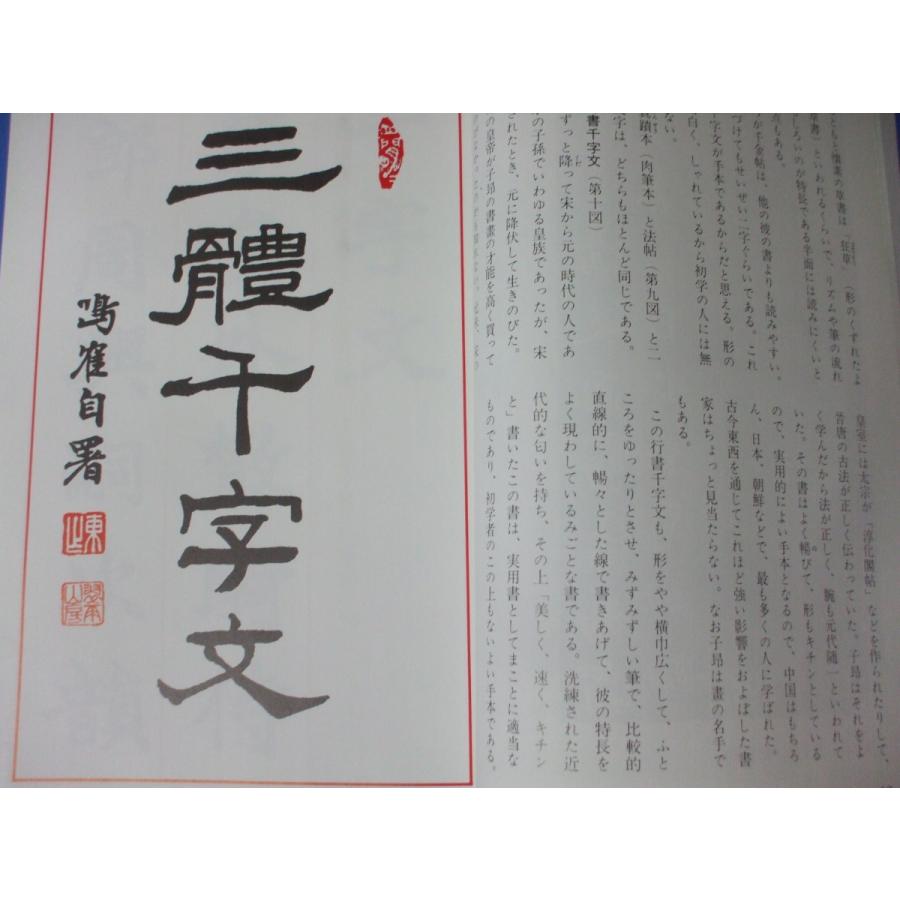 もと懐素の草書は「狂草」(形のくずれたよ
草書)といわれるくらいで、リズムや筆の流れ
しろいのが特長である半面には読みにくいと
点もある。
が千金帖は、他の彼の書よりも読みやすい。
つけてもせいぜい二字ぐらいである。これ
字文が手本であるからだと思える。形の
白く、しゃれているから初学の人には無
ない。
蹟本(肉筆本)と法帖(第九図)と二
字は、どちらもほとんど同じである。
書千字文(第十図)
ずっと降って宋から元の時代の人であ
の子孫でいわゆる皇族であったが、宋
されたとき、元に降伏して生きのびた。
の皇帝が子昂の書畫の才能を高く買って
皇室には太宗が「淳化閣帖」などを作られたりして、
晉唐の古法が正しく伝わっていた。子昂はそれをよ
く学んだから法が正しく、腕も元代随一といわれて
いた。その書はよく暢びて、形もキチンとしている
ので、実用的によい手本となるので、中国はもちろ
ん、日本、朝鮮などで、最も多くの人に学ばれた。
古今東西を通じてこれほど強い影響をおよぼした書
家はちょっと見当たらない。なお子昂は畫の名手で
もある。
この行書千字文も、形をやや横巾広くして、ふと
ころをゆったりとさせ、みずみずしい筆で、比較的
直線的に、暢々とした線で書きあげて、彼の特長を
よく現わしているみごとな書である。洗練された近
代的な匂いを持ち、その上「美しく、速く、キチン
と」書いたこの書は、実用書としてまことに適当な
ものであり、初学者のこの上もないよい手本である。
三體千字文
鳴雀自署